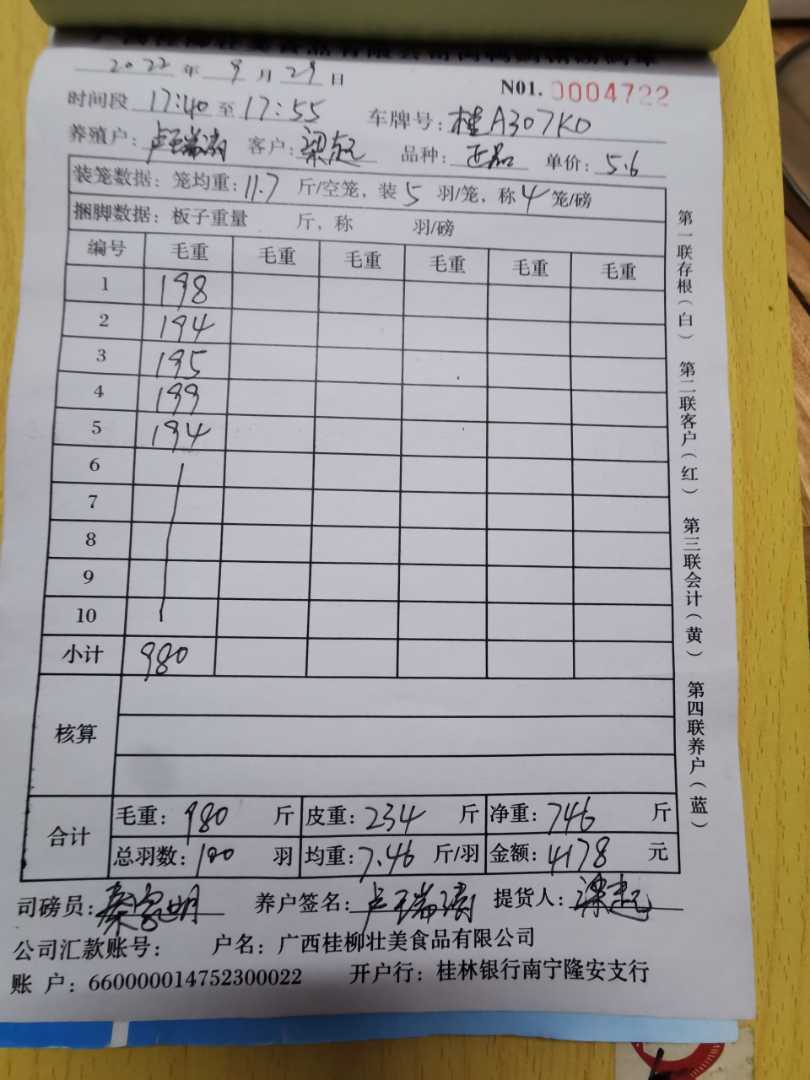 2022年9月29日
N01.0004722
时间段 17:40至17:55 车牌号:桂A307K0
养殖户:卢玉瑞涛 客户:梁起 品种:正品 单价:5.6
装笼数据:笼均重:11.7斤/空笼,装5羽/笼,称4笼/磅
捆脚数据:板子重量 斤,称 羽/磅
编号 毛重 毛重 毛重 毛重 毛重 毛重
1 198
2 194
3 195
4 199
5 194
6
7
8
9
10
小计 980
核算
合计
毛重:980斤 皮重:234斤 净重:746斤
总羽数:100羽 均重:7.46斤/羽 金额:4178元
司磅员:秦家明 养户签名: 提货人:梁起
公司汇款账号: 户名:广西桂柳壮美食品有限公司
账 户:660000014752300022 开户行:桂林银行南宁隆安支行
第一联存根(白) 第二联客户(红) 第三联会计(黄) 第四联养户(蓝)